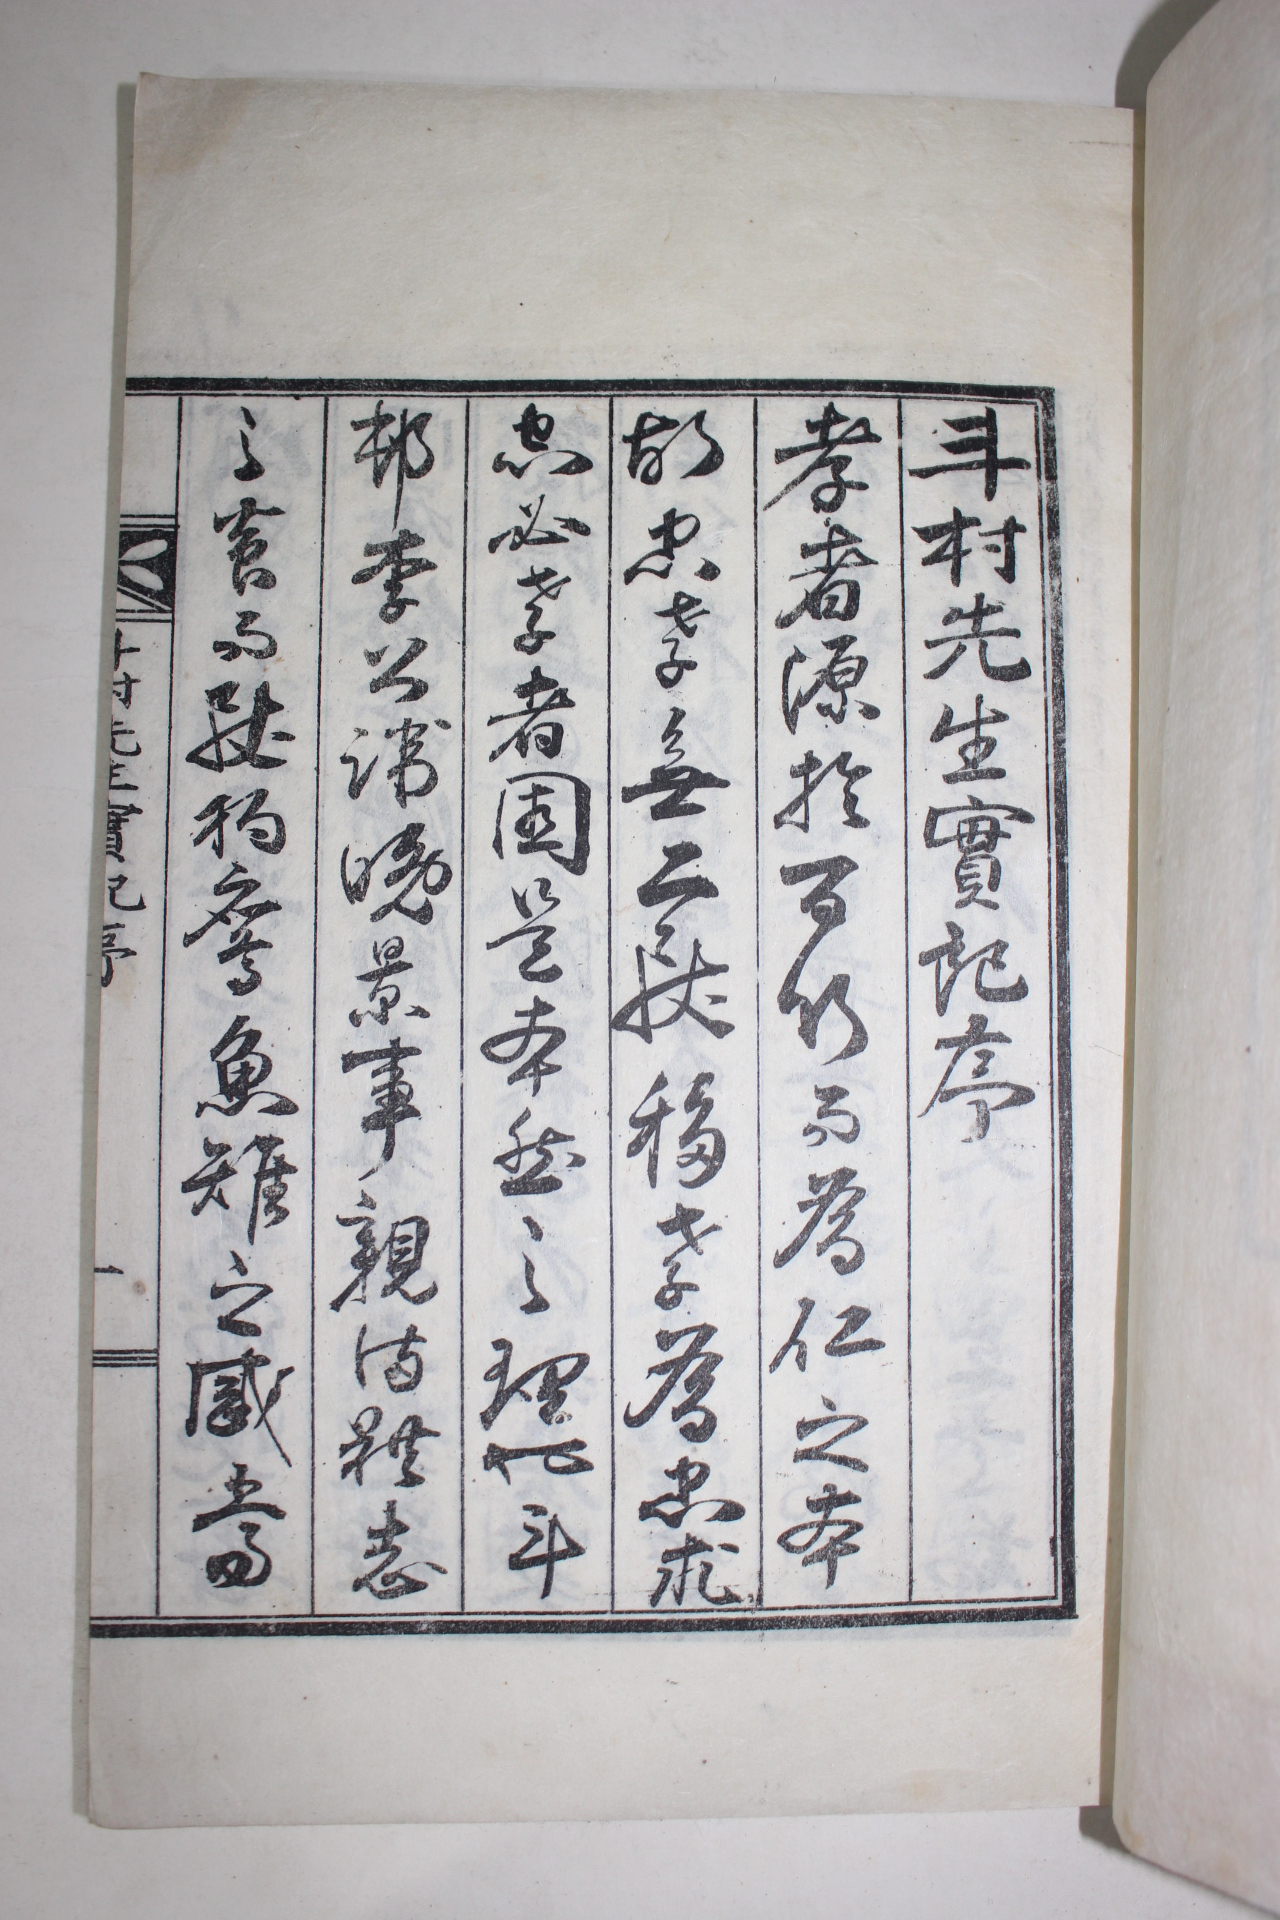 斗村先生實記序
孝者源於百行而為仁之本
故忠孝無二致移孝為忠求
忠必孝者固是本然之理也斗
邨李公諱晚景事親備體志
之養而致魚雉之感當
斗村先生實記序
一